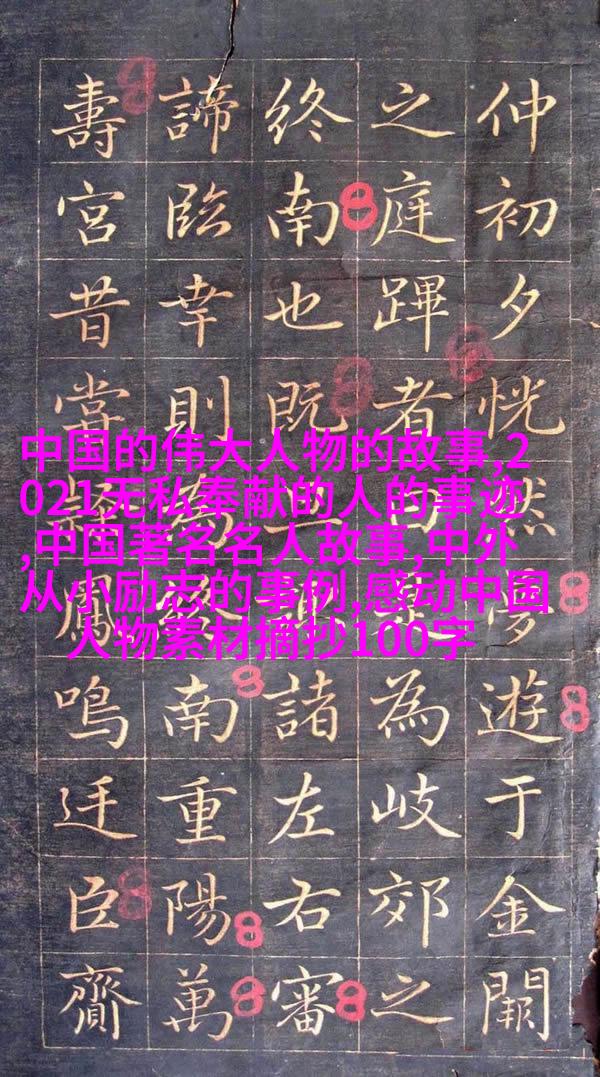 仲初夕恍然夢遊于金闕
之庭蹕者為岐郊之
終南也既諸左右審
諦臨幸則為南重陽萬
壽宮昔嘗鳳鳴廷臣齎
中国的伟大人物的故事,2
021无私奉献的人的事迹
,中国著名名人故事,中外
从小励志的事例,感动中国
人物素材摘抄100字